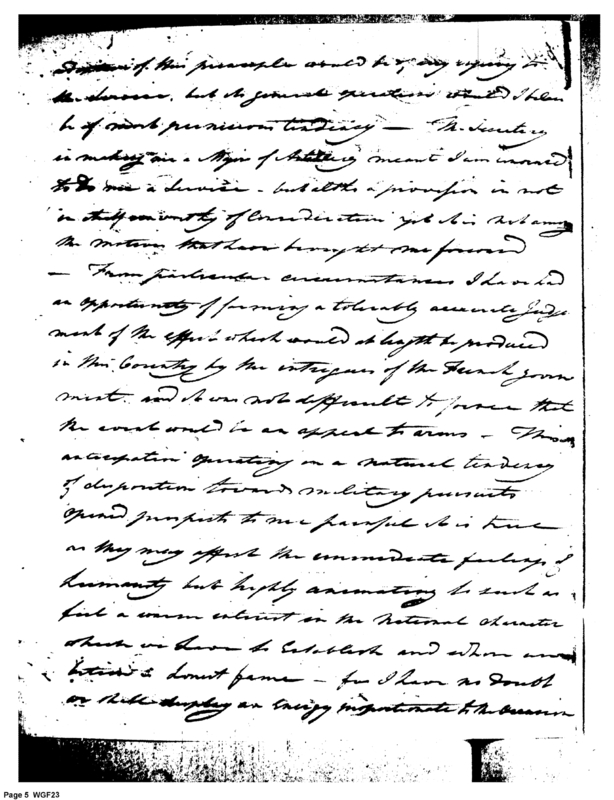 of this principle would be of any injury to
the Service, but its general operation would I believe
be of most pernicious tendency — The Secretary
in making me a Major of Artillery meant I am
to do me a Service - but altho a provision is not
in itself unworthy of Consideration yet it is not among
the motives that have brought me forward
— From particular circumstances I have had
an opportunity of forming a tolerably accurate Judg
ment of the effects which would at length be produced
in this Country by the intrigues of the French govern
ment. and it was not difficult to foresee that
the event would be an appeal to arms — This
anticipation operating on a natural tendency
of disposition towards military pursuits
opened prospects to me painful it is true
as they may affect the immediate feelings of
humanity but highly animating to such as
feel a warm interest in the National character
which we have to Establish and whom
honest fame — for I have no doubt
we shall display an Energy proportionate to the Occasion
Page 5 WGF23